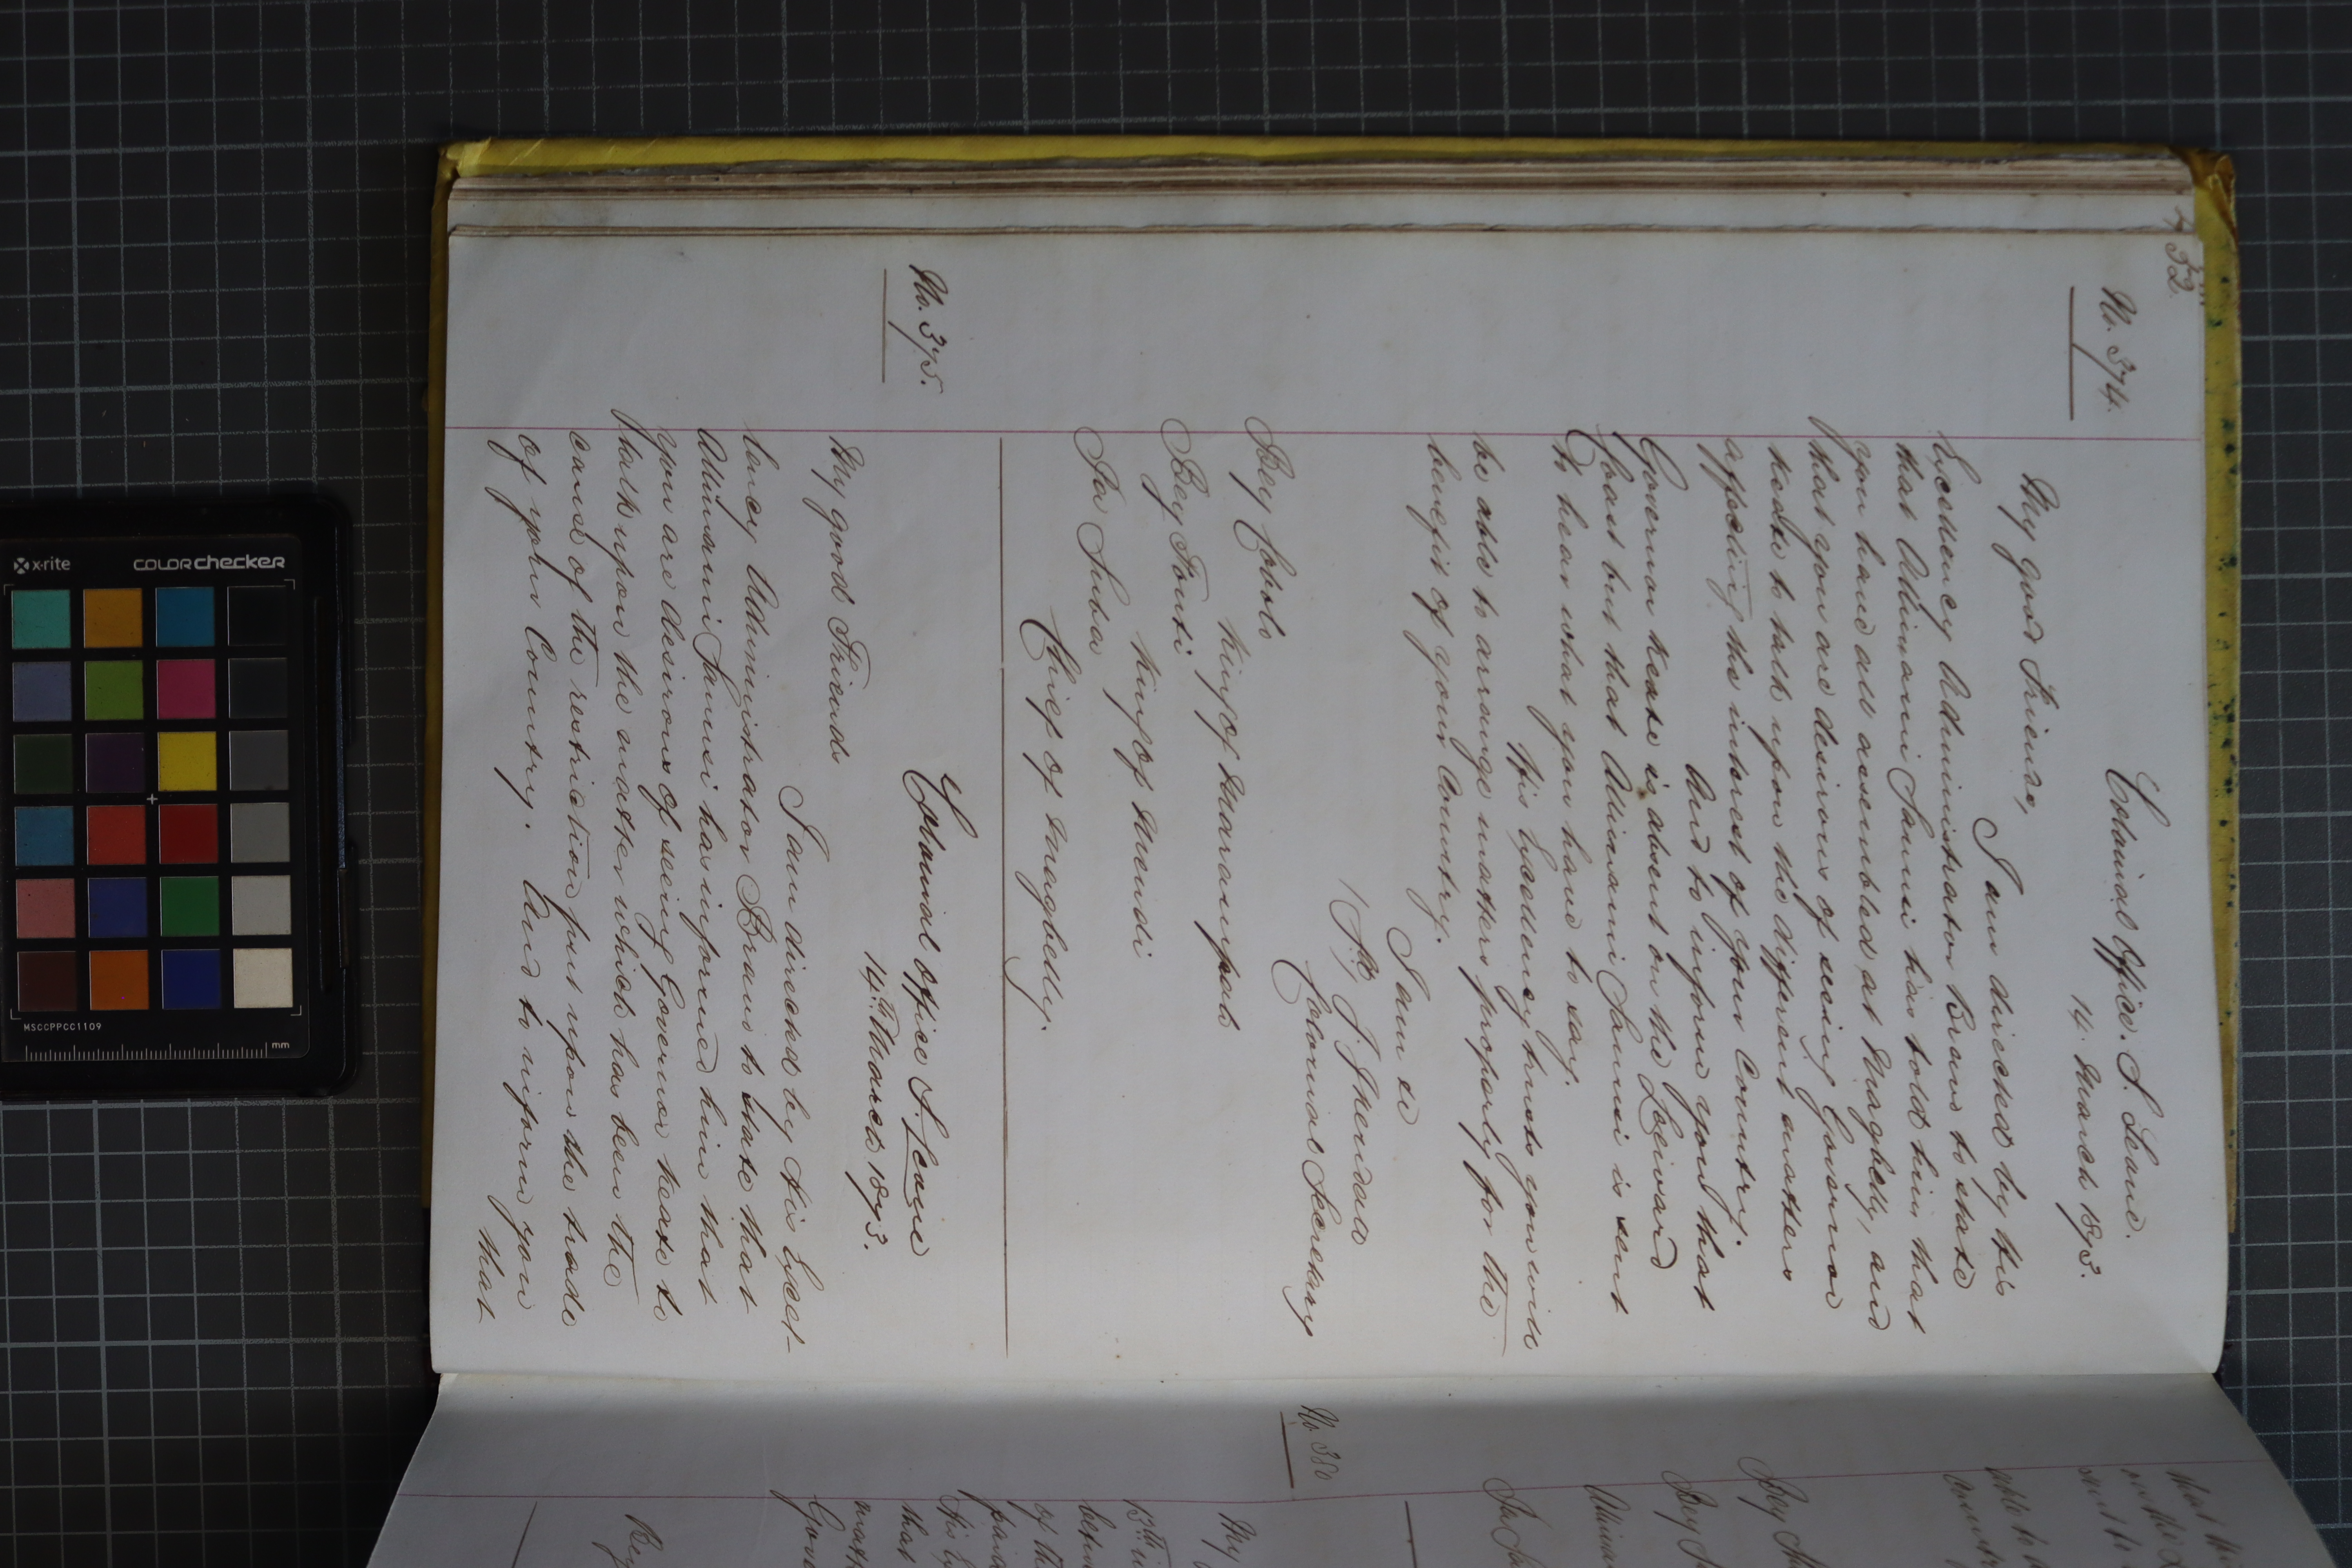 52.
No. 374.
Colonial Office. S. Leone.
14. March 1873.
My good Friends,
I am directed by His
Excellency Administrator Bravo to state
that Alimami Sanusi has told him that
you have all assembled at Magbelly, and
that you are desirous of seeing Governor
Keate to talk upon the different matters
affecting the interest of your Country.
And to inform you that
Governor Keate is absent on the Leeward
Coast but that Alimami Sanusi is sent
to hear what you have to say.
His Excellency trusts you will
be able to arrange matters properly for the
benefit of your Country.
I am &c
Colonial Secretary
Bey Cobolo
King of Marampah
Bey Fonti
King of Mendi
Fa Suba
Chief of Magbelly.
No. 375.
Colonial Office S. Leone
14th March 1873.
My good Friends
I am directed by His Excel-
lency Administrator Bravo to state that
Alimami Sanusi has informed him that
you are desirous of seeing Governor Keate to
talk upon the matter which has been the
cause of the restriction put upon the trade
of your Country. And to inform you
that
No. 380
My
13th
of the
that
Bey
x-rite
colorchecker
MSCCPPCC1109
mm